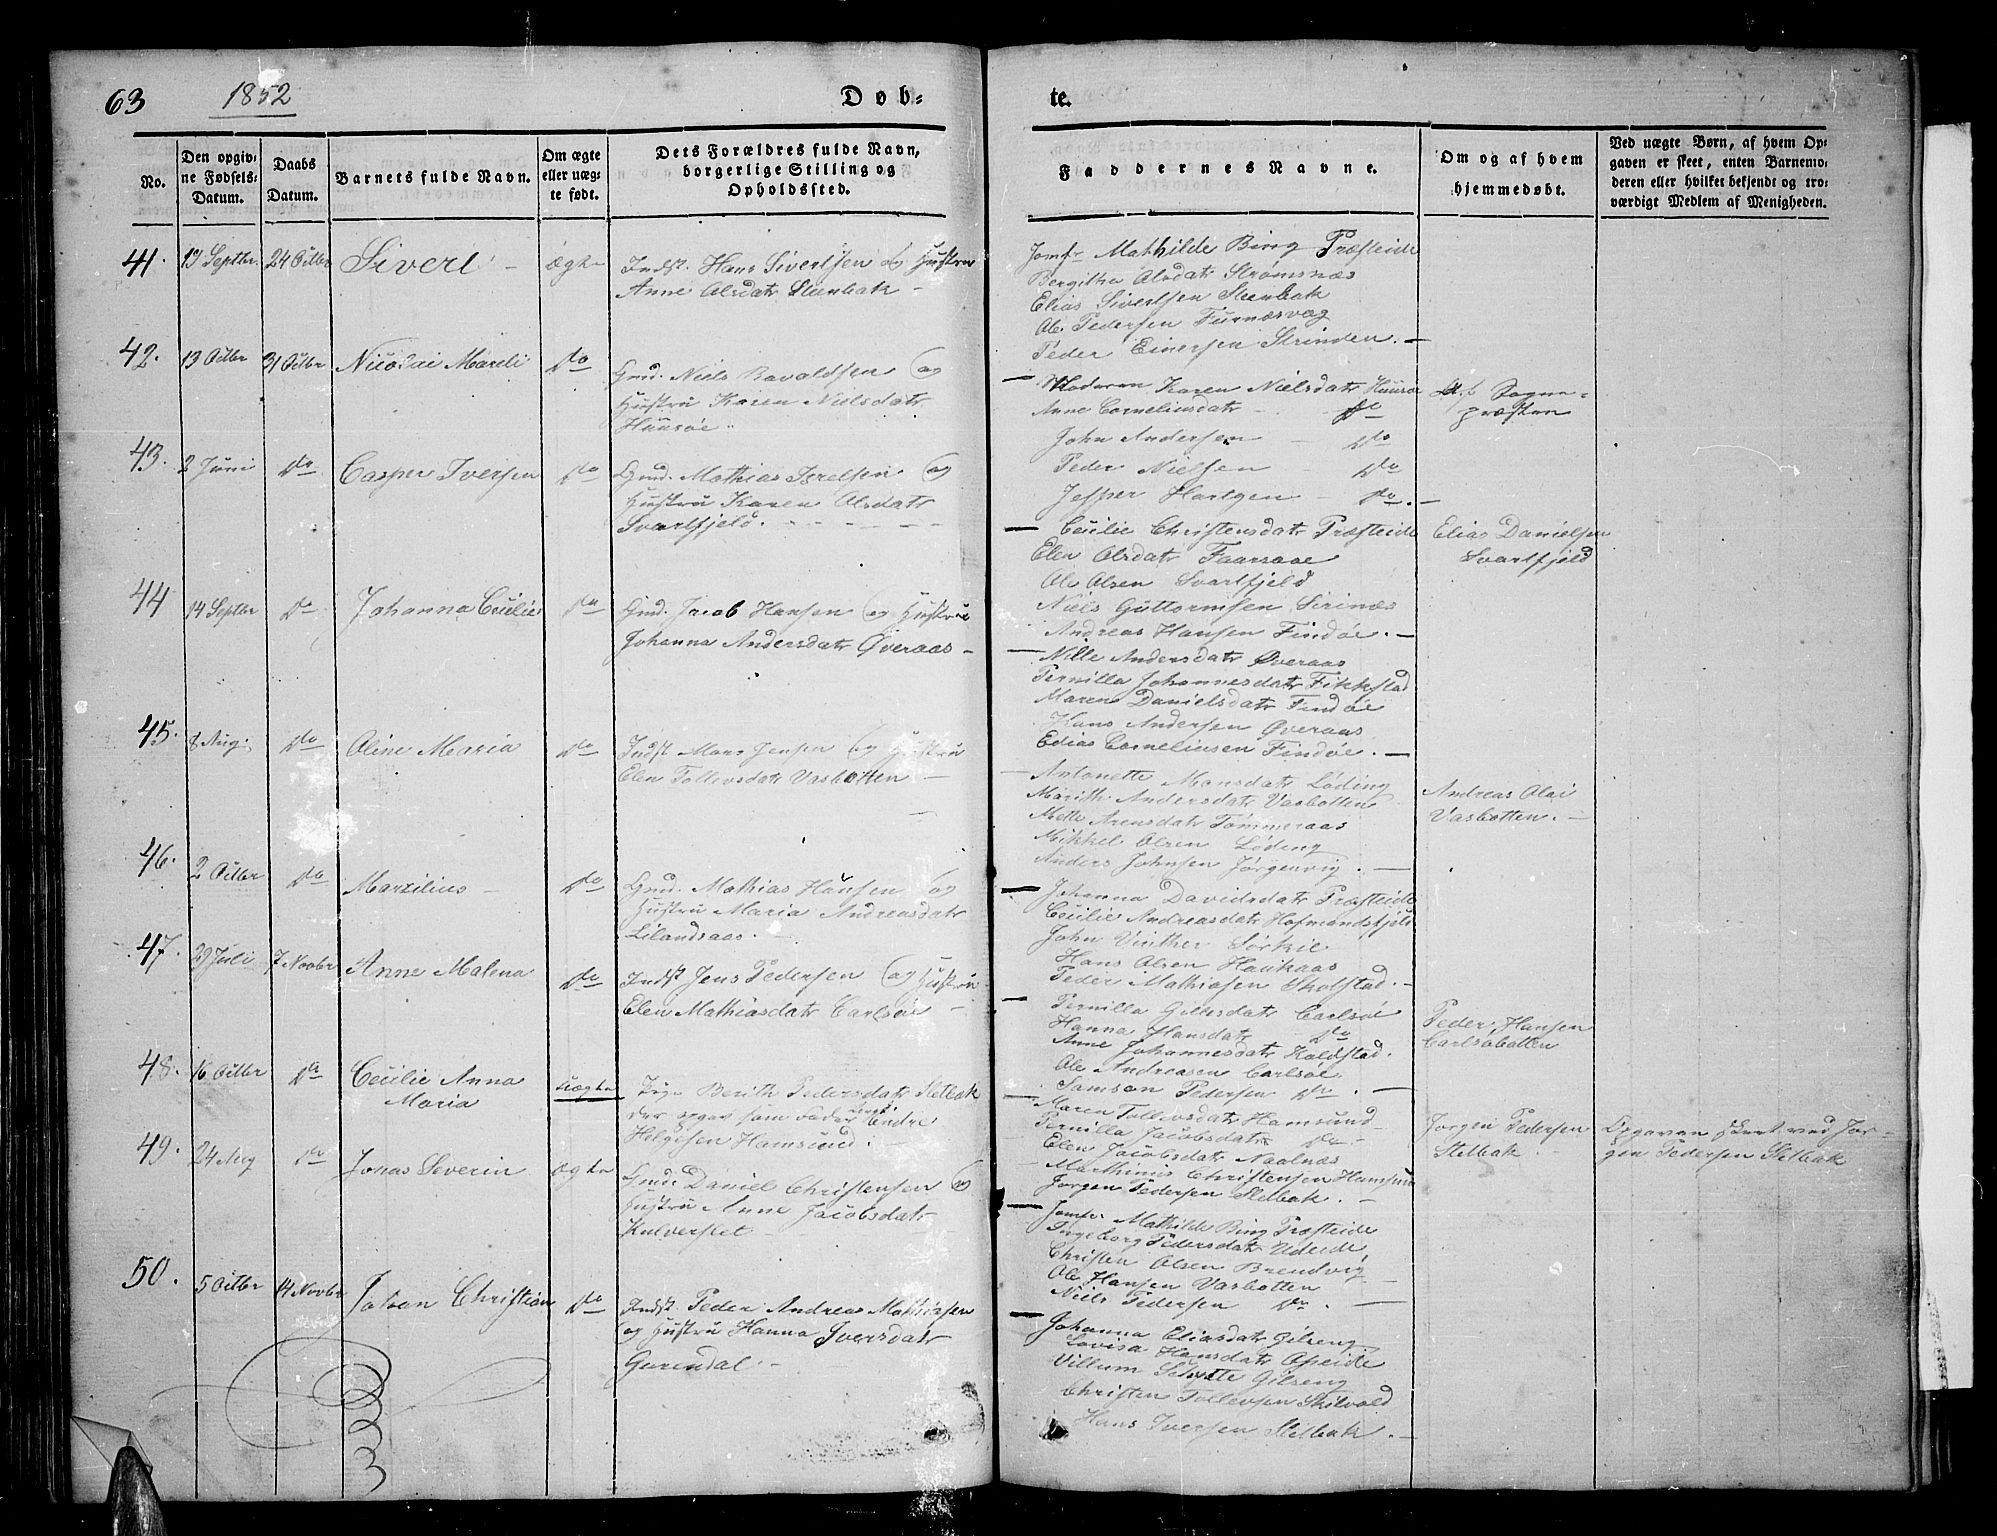 63 1852 Døb- te.
No.
Den opgiv-
ne Fødsels-
Datum.
Daabs
Datum.
Barnets fulde Navn.
Om ægte
eller uæg-
te født.
Dets Forældres fulde Navn,
borgerlige Stilling og
Opholdssted.
Faddernes Navne.
Om og af hvem
hjemmedøbt.
Ved uægte Børn, af hvem Op-
gaven er skeet, enten Barnemo-
deren eller hvilket bekjendt og tro-
værdigt Medlem af Menigheden.
41. 19 Septbr. 24 Octbr Sivert - ægte
Indst. Hans Sivertsen & Hustru
Anne Olsdatr Steenbak -
Jomfr Mathilde Bing Præsteide
Bergitha Olsdatr Strømsnæs
Elias Sivertsen Steenbak
Ole Pedersen Furnæsvæg
Peder Einersen Strinden. -
42. 13 Octbr 31 Octbr Nicolai Mareli do
Gmd. Niels Ravaldsen og
Hustru Karen Nielsdatr
Huusøe
Moderen Karen Nielsdatr Huusøe
Anne Corneliusdatr do
John Andersen - do
Peder Nielsen - do
Jesper Hartgen - do. -
Af Sogne-
præsten
43. 2 Juni do Casper Iversen do
Gmd. Mathias Isrelsen og
Hustru Karen Olsdatr
Svartfjeld.
Cecilie Christensdatr Præsteide
Elen Olsdatr Faarøe
Ole Olsen Svartfjeld
Niels Guttormsen Sirinæs
Andreas Hansen Findøe. -
Elias Danielsen
Svartfjeld
44 14 Septbr do Johanna Cecilie do
Gmd. Jacob Hansen og Hustrue
Johanna Andersdatr Øveraas -
Nille Andersdatr Øveraas
Pernilla Johannesdatr Fikkestad
Maren Danielsdatr Findøe
Hans Andersen Øveraas
Edias Corneliusen Findøe. -
45. 8 Aug. do Oline Maria do
Indst Mons Jensen og Hustru
Elen Tollevsdatr Vasbotten -
Antonette Monsdatr Løding
Marith Andersdatr Vasbotten
Mette Arensdatr Tømmeraas
Mikkel Olsen Løding
Anders Johnsen Jørgenvig. -
Andreas Olai
Vasbotten. -
46. 2 Octbr do Marzilius - do
Gmd. Mathias Hansen og
Hustru Maria Andreasdatr
Lilandsaas. -
Johanna Davidsdatr Præsteide
Cecilie Andreasdatr Hofmandsfjeld
John Vinther Sørkil
Hans Olsen Haukaas
Peder Mathiasen Skolstad. -
47. 29 Juli 7 Novbr Anne Malena do
Indst Jens Pedersen og Hustru
Elen Mathiasdatr Carlsøe -
Pernilla Gillesdatr Carlsøe
Hanna Hansdatr do
Anne Johannesdatr Koldstad.
Ole Andreasen Carlsøe
Samson Pedersen do. -
Peder Hansen
Carlsøbotten
48. 16 Octbr do Cecilie Anna
Maria
uægte
Pige Berith Pedersdatr Stelbak
der opgav som Fader Endre
Helgesen Hamsund. -
Maren Tollevsdatr Hamsund -
Pernilla Jacobsdatr do -
Elen Jacobsdatr Naalnæs
Marthinis Christensen Hamsund
Jørgen Pedersen Stelbak. -
Jørgen Pedersen
Stelbak. -
Opgaven skeet ved Jør-
gen Pedersen Stelbak
49. 24 Aug do Jonas Severin ægte
Gmd. Daniel Christensen og
Hustru Anne Jacobsdatr
Kulverslet -
Jomfr. Mathilde Bing Præsteide
Ingeborg Pedersdatr Udeide
Christen Olsen Brendvig
Ole Hansen Vasbotten -
Niels Pedersen do. -
50. 5 Octbr 14 Novbr Johan Christian do
Indst. Peder Andreas Mathiasen
og Hustru Hanna Iversdatr
Gurendal -
Johanna Eliasdatr Gilseng
Lovisa Hansdatr Opeide
Villum Gilseng
Christen Tollevsen Skilvold
Hans Iversen Stelbak. -